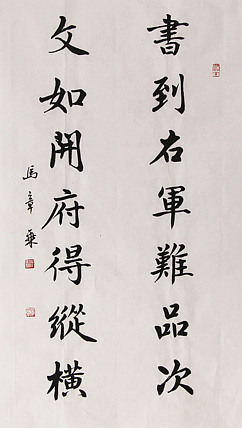 書到右軍難品次
文如開府得縱橫
馬章乘